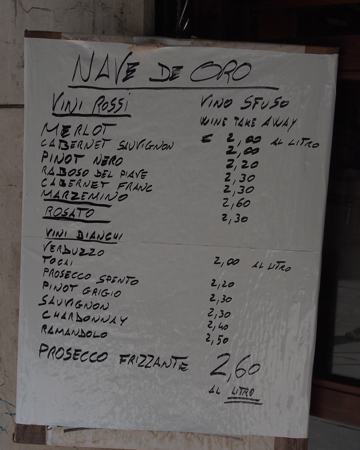 NAVE DE ORO
VINI ROSSI VINO SFUSO
WINE TAKE AWAY
MERLOT € 2,00 AL LITRO
CABERNET SAUVIGNON 2,00
PINOT NERO 2,20
RABOSO DEL PIAVE 2,30
CABERNET FRANC 2,30
MARZEMINO 2,60
ROSATO 2,30
VINI BIANCHI
VERDUZZO 2,00 AL LITRO
TOCAI
PROSECCO SPENTO 2,20
PINOT GRIGIO 2,30
SAUVIGNON 2,30
CHARDONNAY 2,40
RAMANDOLO 2,50
PROSECCO FRIZZANTE 2,60
AL LITRO